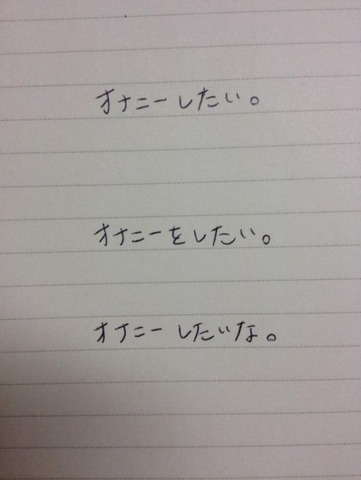 オナニーしたい。
オナニーをしたい。
オナニーしたいな。